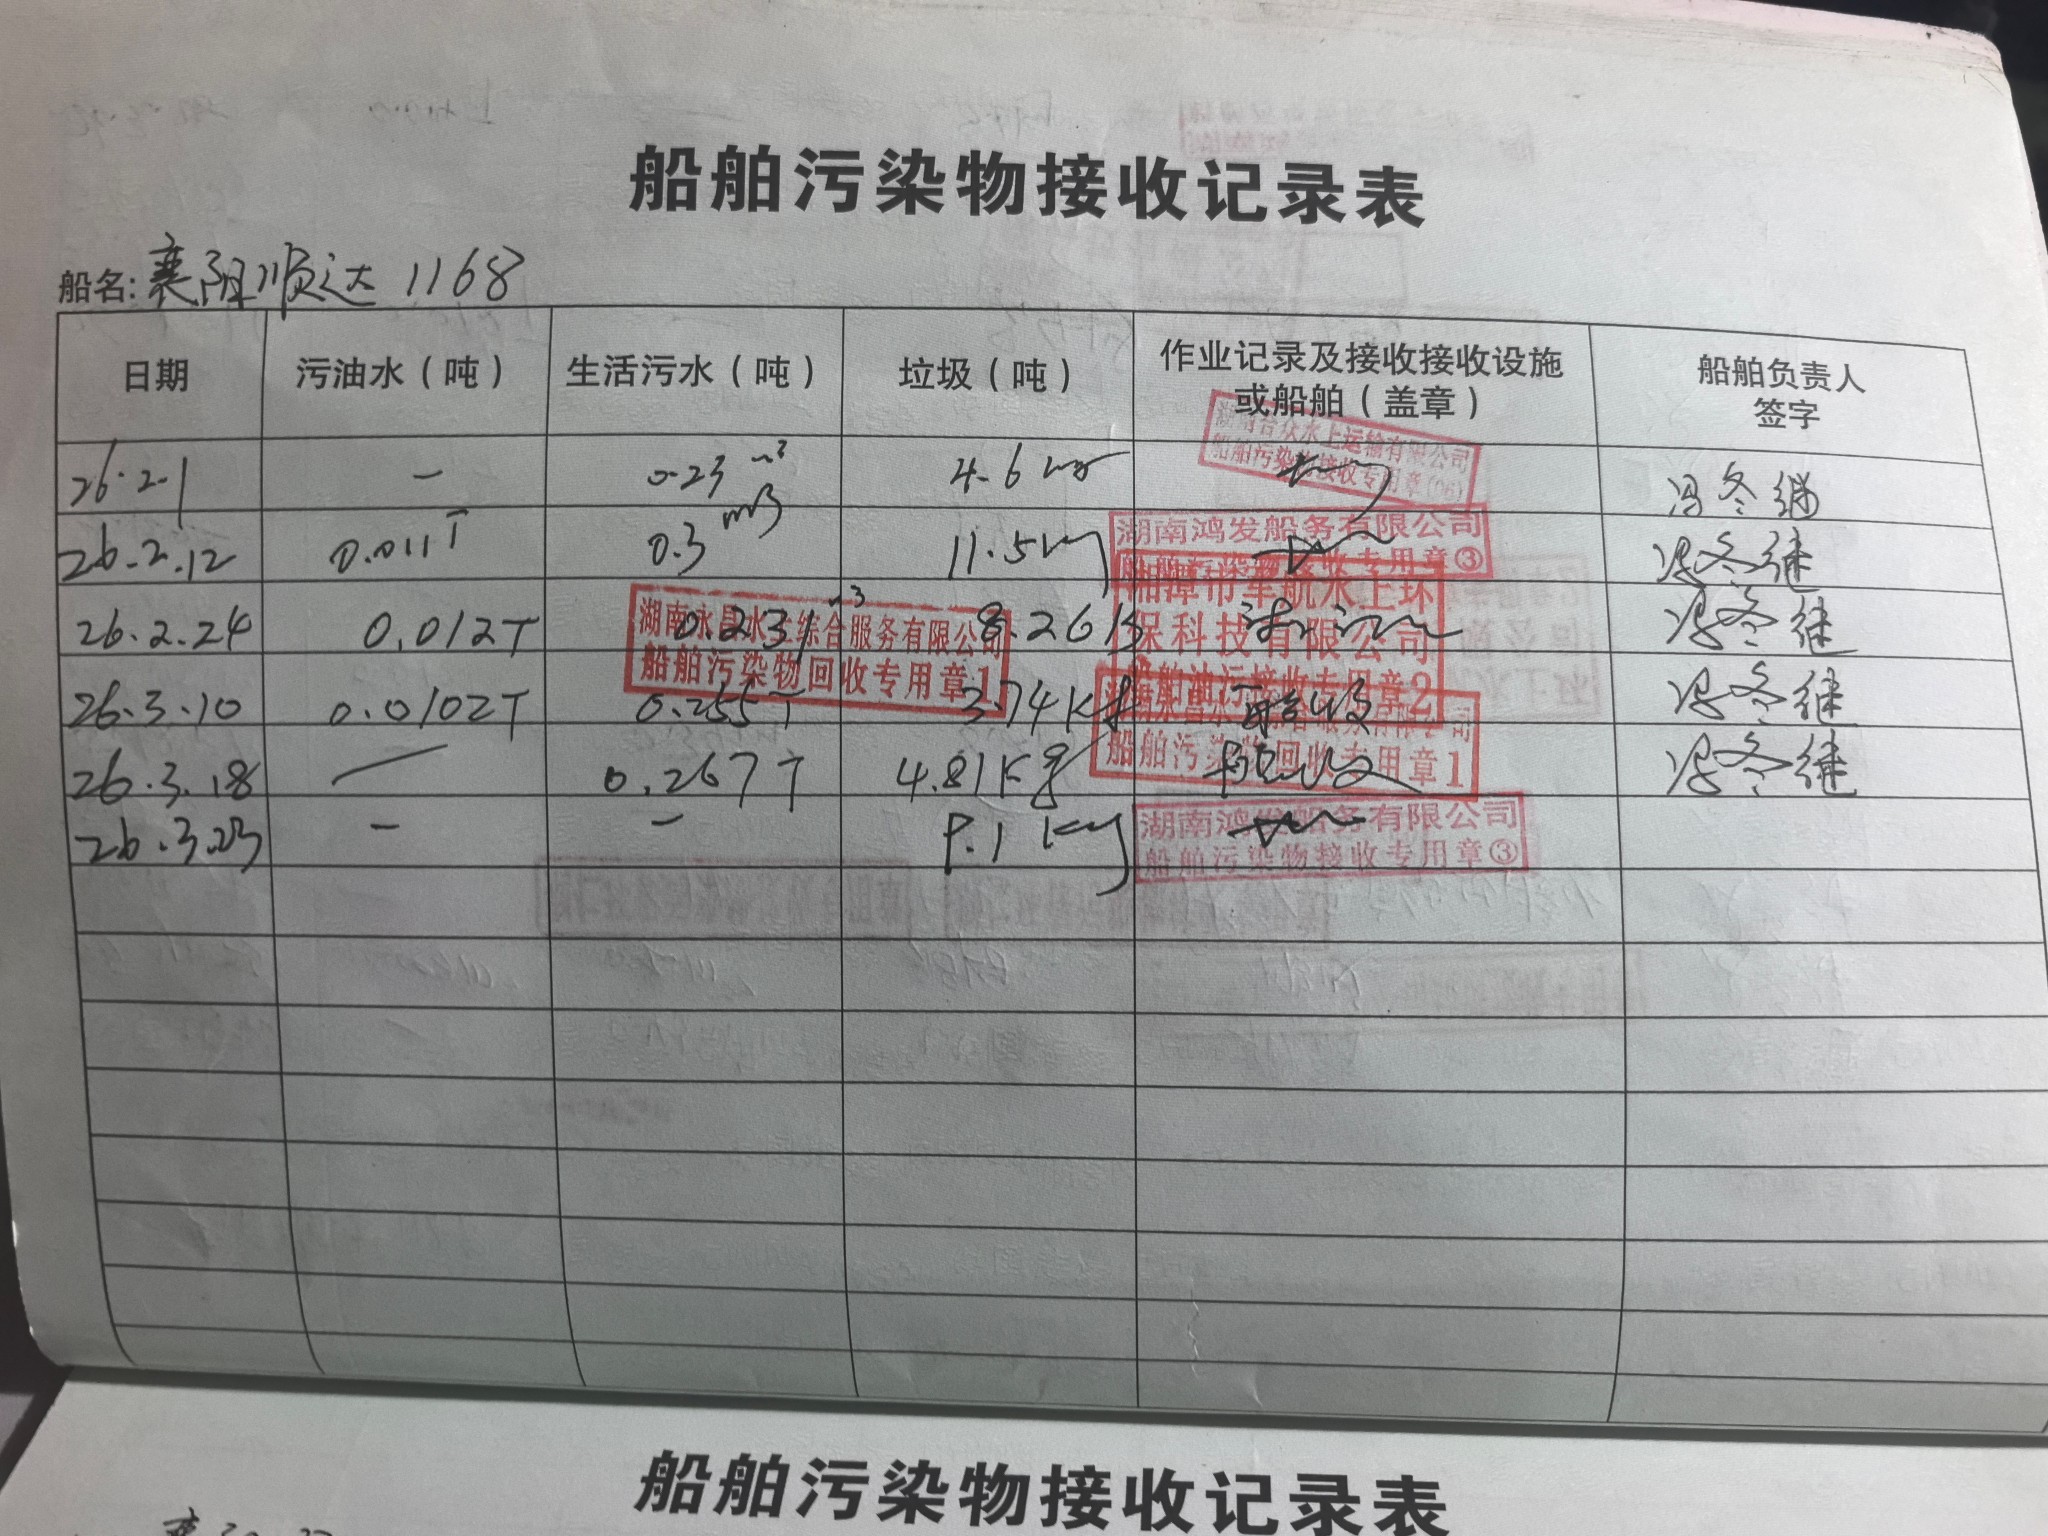 船舶污染物接收记录表
船名: 襄阳顺达 1168
日期 污油水（吨） 生活污水（吨） 垃圾（吨） 作业记录及接收接收设施或船舶（盖章） 船舶负责人签字
26.2.1 - 0.23 m³ 4.6 kg 湖南合众水上运输有限公司 船舶污染物接收专用章(06) 冯冬继
26.2.12 0.011T 0.3 m3 11.5kg 湖南鸿发船务有限公司 船舶污染物接收专用章③ 冯冬继
26.2.24 0.012T 0.231 m3 8.26 湘潭市军航水上环保科技有限公司 船舶油污接收专用章2 冯冬继
湖南永昌水上综合服务有限公司 船舶污染物回收专用章1
26.3.10 0.0102T 0.255T 3.74Kg 冯冬继
26.3.18 — 0.267T 4.81Kg 船舶污染物回收专用章1 冯冬继
26.3.23 - - 9.1 Kg 湖南鸿发船务有限公司 船舶污染物接收专用章③
船舶污染物接收记录表